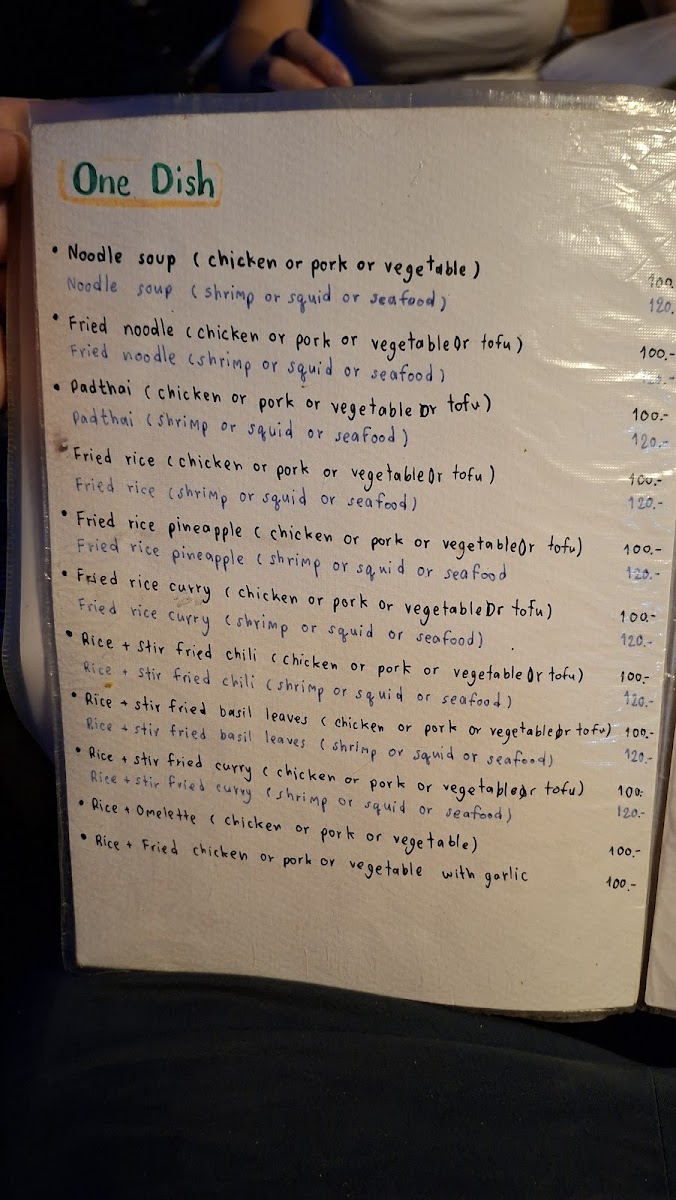 One Dish
• Noodle soup (chicken or pork or vegetable) 100.
Noodle soup (shrimp or squid or seafood) 120.
• Fried noodle (chicken or pork or vegetable Or tofu) 100.-
Fried noodle (shrimp or squid or seafood) 120.-
• Padthai (chicken or pork or vegetable Or tofu) 100.-
Padthai (shrimp or squid or seafood) 120.-
• Fried rice (chicken or pork or vegetable Or tofu) 100.-
Fried rice (shrimp or squid or seafood) 120.-
• Fried rice pineapple (chicken or pork or vegetable Or tofu) 100.-
Fried rice pineapple (shrimp or squid or seafood 120.-
• Fried rice curry (chicken or pork or vegetable Or tofu) 100.-
Fried rice curry (shrimp or squid or seafood) 120.-
• Rice + stir fried chili (chicken or pork or vegetable Or tofu) 100.-
Rice + stir fried chili (shrimp or squid or seafood) 120.-
• Rice + stir fried basil leaves (chicken or pork or vegetable or tofu) 100.-
Rice + stir fried basil leaves (shrimp or squid or seafood) 120.-
• Rice + stir fried curry (chicken or pork or vegetable or tofu) 100.-
Rice + stir fried curry (shrimp or squid or seafood) 120.-
• Rice + Omelette (chicken or pork or vegetable) 100.-
• Rice + Fried chicken or pork or vegetable with garlic 100.-